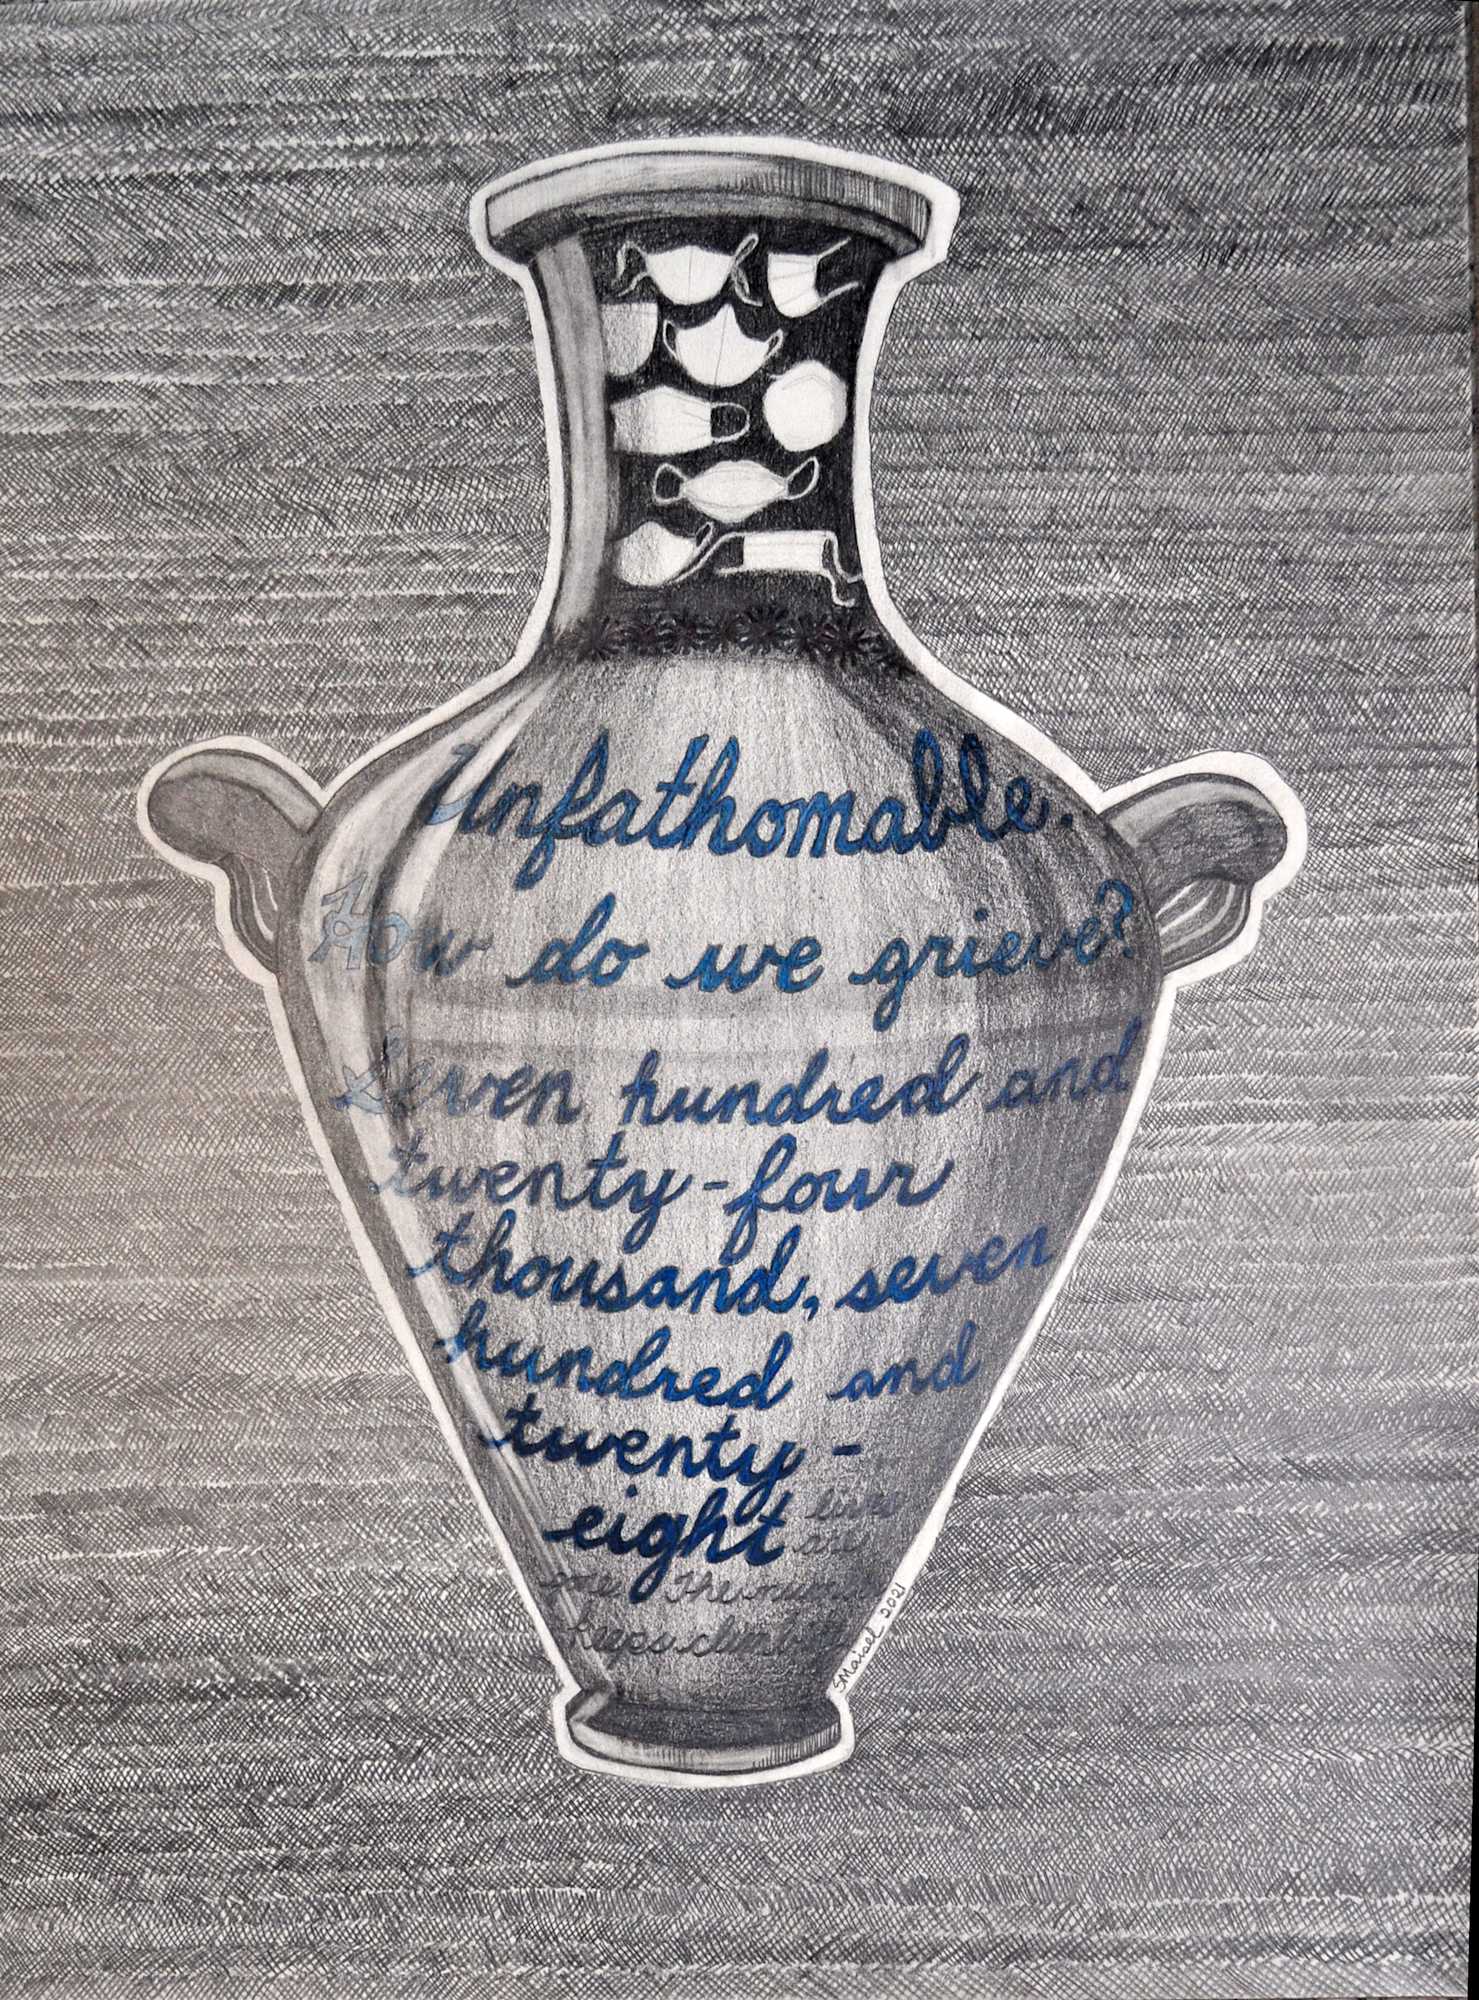 Unfathomable.
How do we grieve?
Seven hundred and
twenty-four
thousand, seven
hundred and
twenty-
eight lives
are
gone. The number
keeps climbing
SMaisel 2021